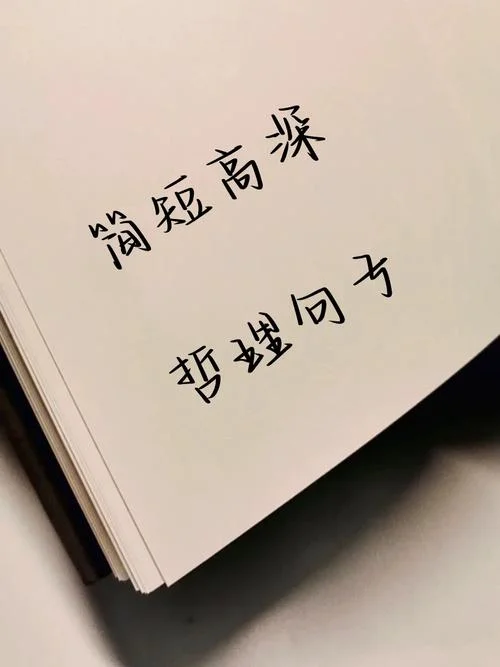 简短高深
哲理句子